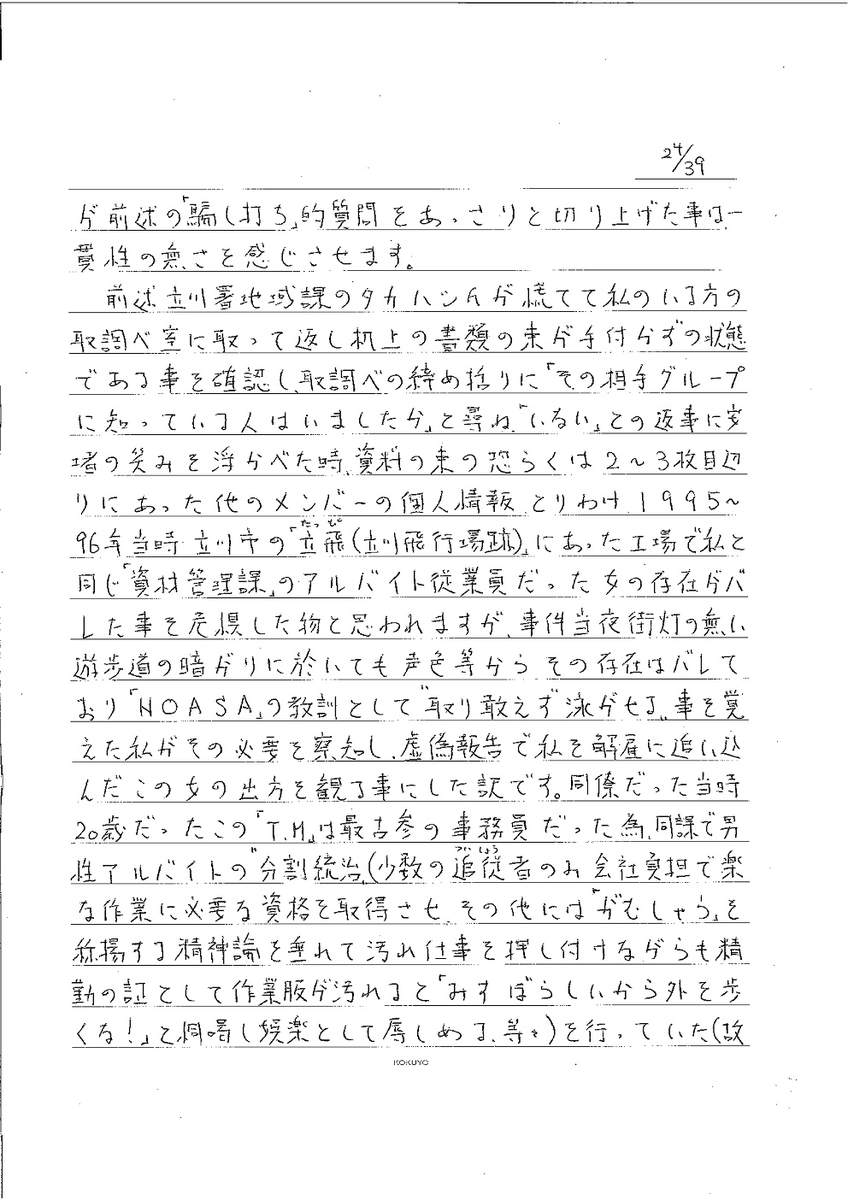 24/39
が前述の「騙し打ち」的質問をあっさりと切り上げた事は一
貫性の無さを感じさせます。
前述立川署地域課のタカハシAが慌てて私のいる方の
取調べ室に取って返し机上の書類の束が手付かずの状態
である事を確認し、取調べの締め括りに「その相手グループ
に知っている人はいましたか」と尋ね「いない」との返事に安
堵の笑みを浮かべた時、資料の束の恐らくは2~3枚目辺
りにあった他のメンバーの個人情報、とりわけ1995~
たっぴ
96年当時立川市の「立飛(立川飛行場跡)」にあった工場で私と
同じ「資材管理課」のアルバイト従業員だった女の存在がバ
レた事を危惧した物と思われますが、事件当夜街灯の無い
遊歩道の暗がりに於いても声色等からその存在はバレて
おり「NOASA」の教訓として"取り敢えず泳がせる"事を覚
えた私がその必要を察知し、虚偽報告で私を解雇に追い込
んだこの女の出方を観る事にした訳です。同僚だった当時
20歳だったこの「T.M」は最古参の事務員だった為、同課で男
ついしょう
性アルバイトの"分割統治"(少数の追従者のみ会社負担で楽
な作業に必要な資格を取得させ、その他には「がむしゃら」を
称揚する精神論を垂れて汚れ仕事を押し付けながらも精
勤の証として作業服が汚れると「みすぼらしいから外を歩
くな!」と恫喝し娯楽として辱しめる、等々)を行っていた(故
KOKUYO